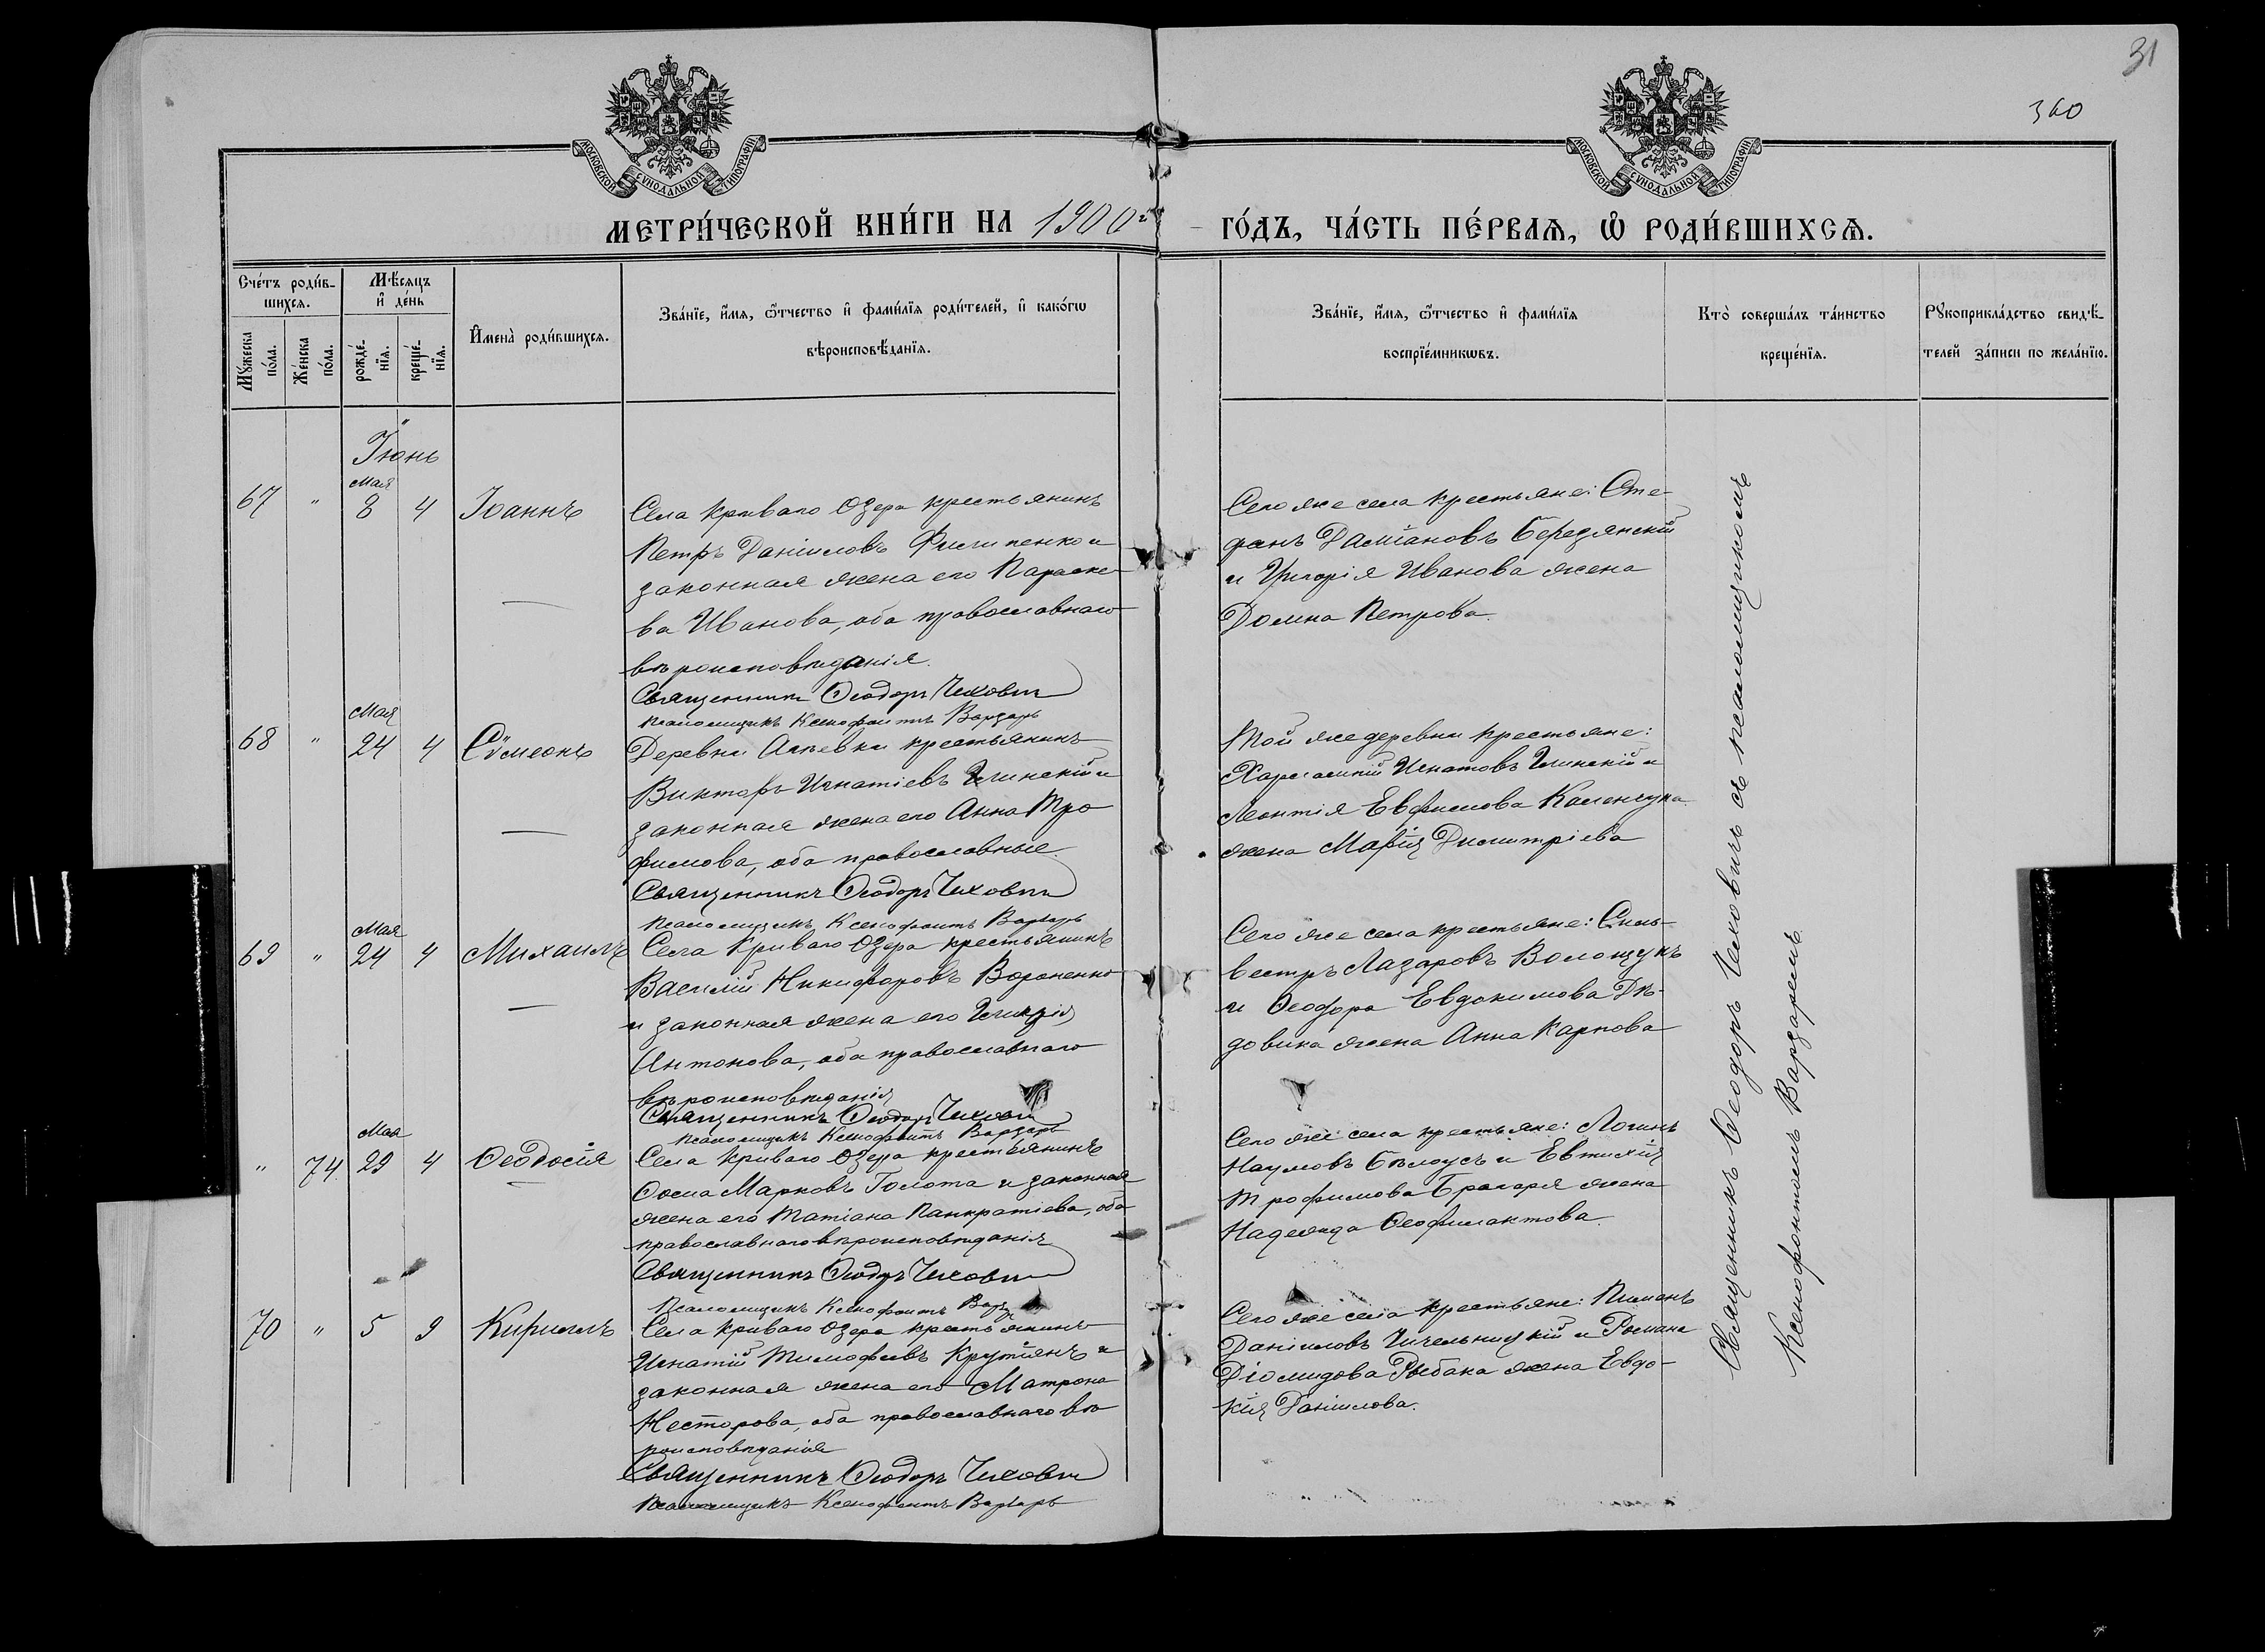 31
360
МОСКОВСКОЙ СѴНОДАЛЬНОЙ ТИПОГРАФІИ
МОСКОВСКОЙ СѴНОДАЛЬНОЙ ТИПОГРАФІИ
МЕТРИ́ЧЕСКОЙ КНИ́ГИ НА 1900й
ГО́ДЪ, ЧА́СТЬ ПЕ́РВАѦ, Ѡ РОДИ́ВШИХСѦ.
Сче́тъ роди́в-
шихся.
Мꙋжеска по́ла.
Же́нска по́ла.
Мѣ́сяцъ
и҆ де́нь
рожде́-
нїя.
креще́-
нїя.
И҆мена̀ роди́вшихся.
Зва́нїе, и҆́мя, ѻ҆́тчество и҆ фами́лїя роди́телей, и҆ како́гѡ
вѣроисповѣ́данїя.
Зва́нїе, и҆́мя, ѻ҆́тчество и҆ фами́лїя
воспрїе́мникѡвъ.
Кто̀ соверша́лъ та́инство
креще́нїя.
Рꙋкоприкла́дство свидѣ́-
телей за́писи по жела́нїю.
Іюнь
67 " Мая 8 4 Іоаннъ
Села Криваго Озера крестьянинъ
Петръ Даніиловъ Филипенко и
законная жена его Параске-
ва Иванова, оба православнаго
вѣроисповѣданія.
Священникъ Ѳеодоръ Чехович
Псаломщикъ Ксенофонтъ Варзарь
Сего же села крестьяне: Сте-
фанъ Даміановъ Березянскій
и Григорія Иванова жена
Домна Петрова.
68 " Мая 24 4 Сѵмеонъ
Деревни крестьянинъ
Викторъ Игнатіевъ Глинскій и
законная жена его Анна Тро
фимова, оба православные.
Священникъ Ѳеодоръ Чехович
Псаломщикъ Ксенофонтъ Варзарь
Той же деревни крестьяне:
Харлампій Игнатовъ Глинскій и
Леонтія Евфимова Каленчука
жена Марія Димитріева
69 " Мая 24 4 Михаилъ
Села Криваго Озера крестьянинъ
Василій Никифоровъ Вороненко
и законная жена его Гликерія
Антонова, оба православнаго
вѣроисповѣданія
Священникъ Ѳеодоръ Чехович
Псаломщикъ Ксенофонтъ Варзарь
Сего же села крестьяне: Силь-
вестръ Лазаровъ Волощукъ
и Ѳеодора Евдокимова Дѣ-
довика жена Анна Карпова
" 74. Мая 29 4 Ѳеодосія
Села Криваго Озера крестьянинъ
Ѳома Марковъ Голота и законная
жена его Татіана Панкратіева, оба
православнаго вѣроисповѣданія
Священникъ Ѳеодоръ Чехович
Псаломщикъ Ксенофонтъ
Сего же села крестьяне: Логинъ
Наумовъ Бѣлоусъ и Евтихія
Трофимова Брагаря жена
Надежда Ѳеофилактова.
70 " 5 9 Кириллъ
Села Криваго Озера крестьянинъ
Игнатій Тимофеевъ Крутіянъ и
законная жена его Матрона
Несторова, оба православнаго вѣ
роисповѣданія
Священникъ Ѳеодоръ Чехович
Псаломщикъ Ксенофонтъ Варзарь
Сего же села крестьяне: Пименъ
Даніиловъ Чичельницкій и Романа
Діомидова Рыбака жена Евдо-
кія Даніилова.
Священникъ Ѳеодоръ Чеховичъ съ псаломщикомъ
Ксенофонтомъ Варзаремъ